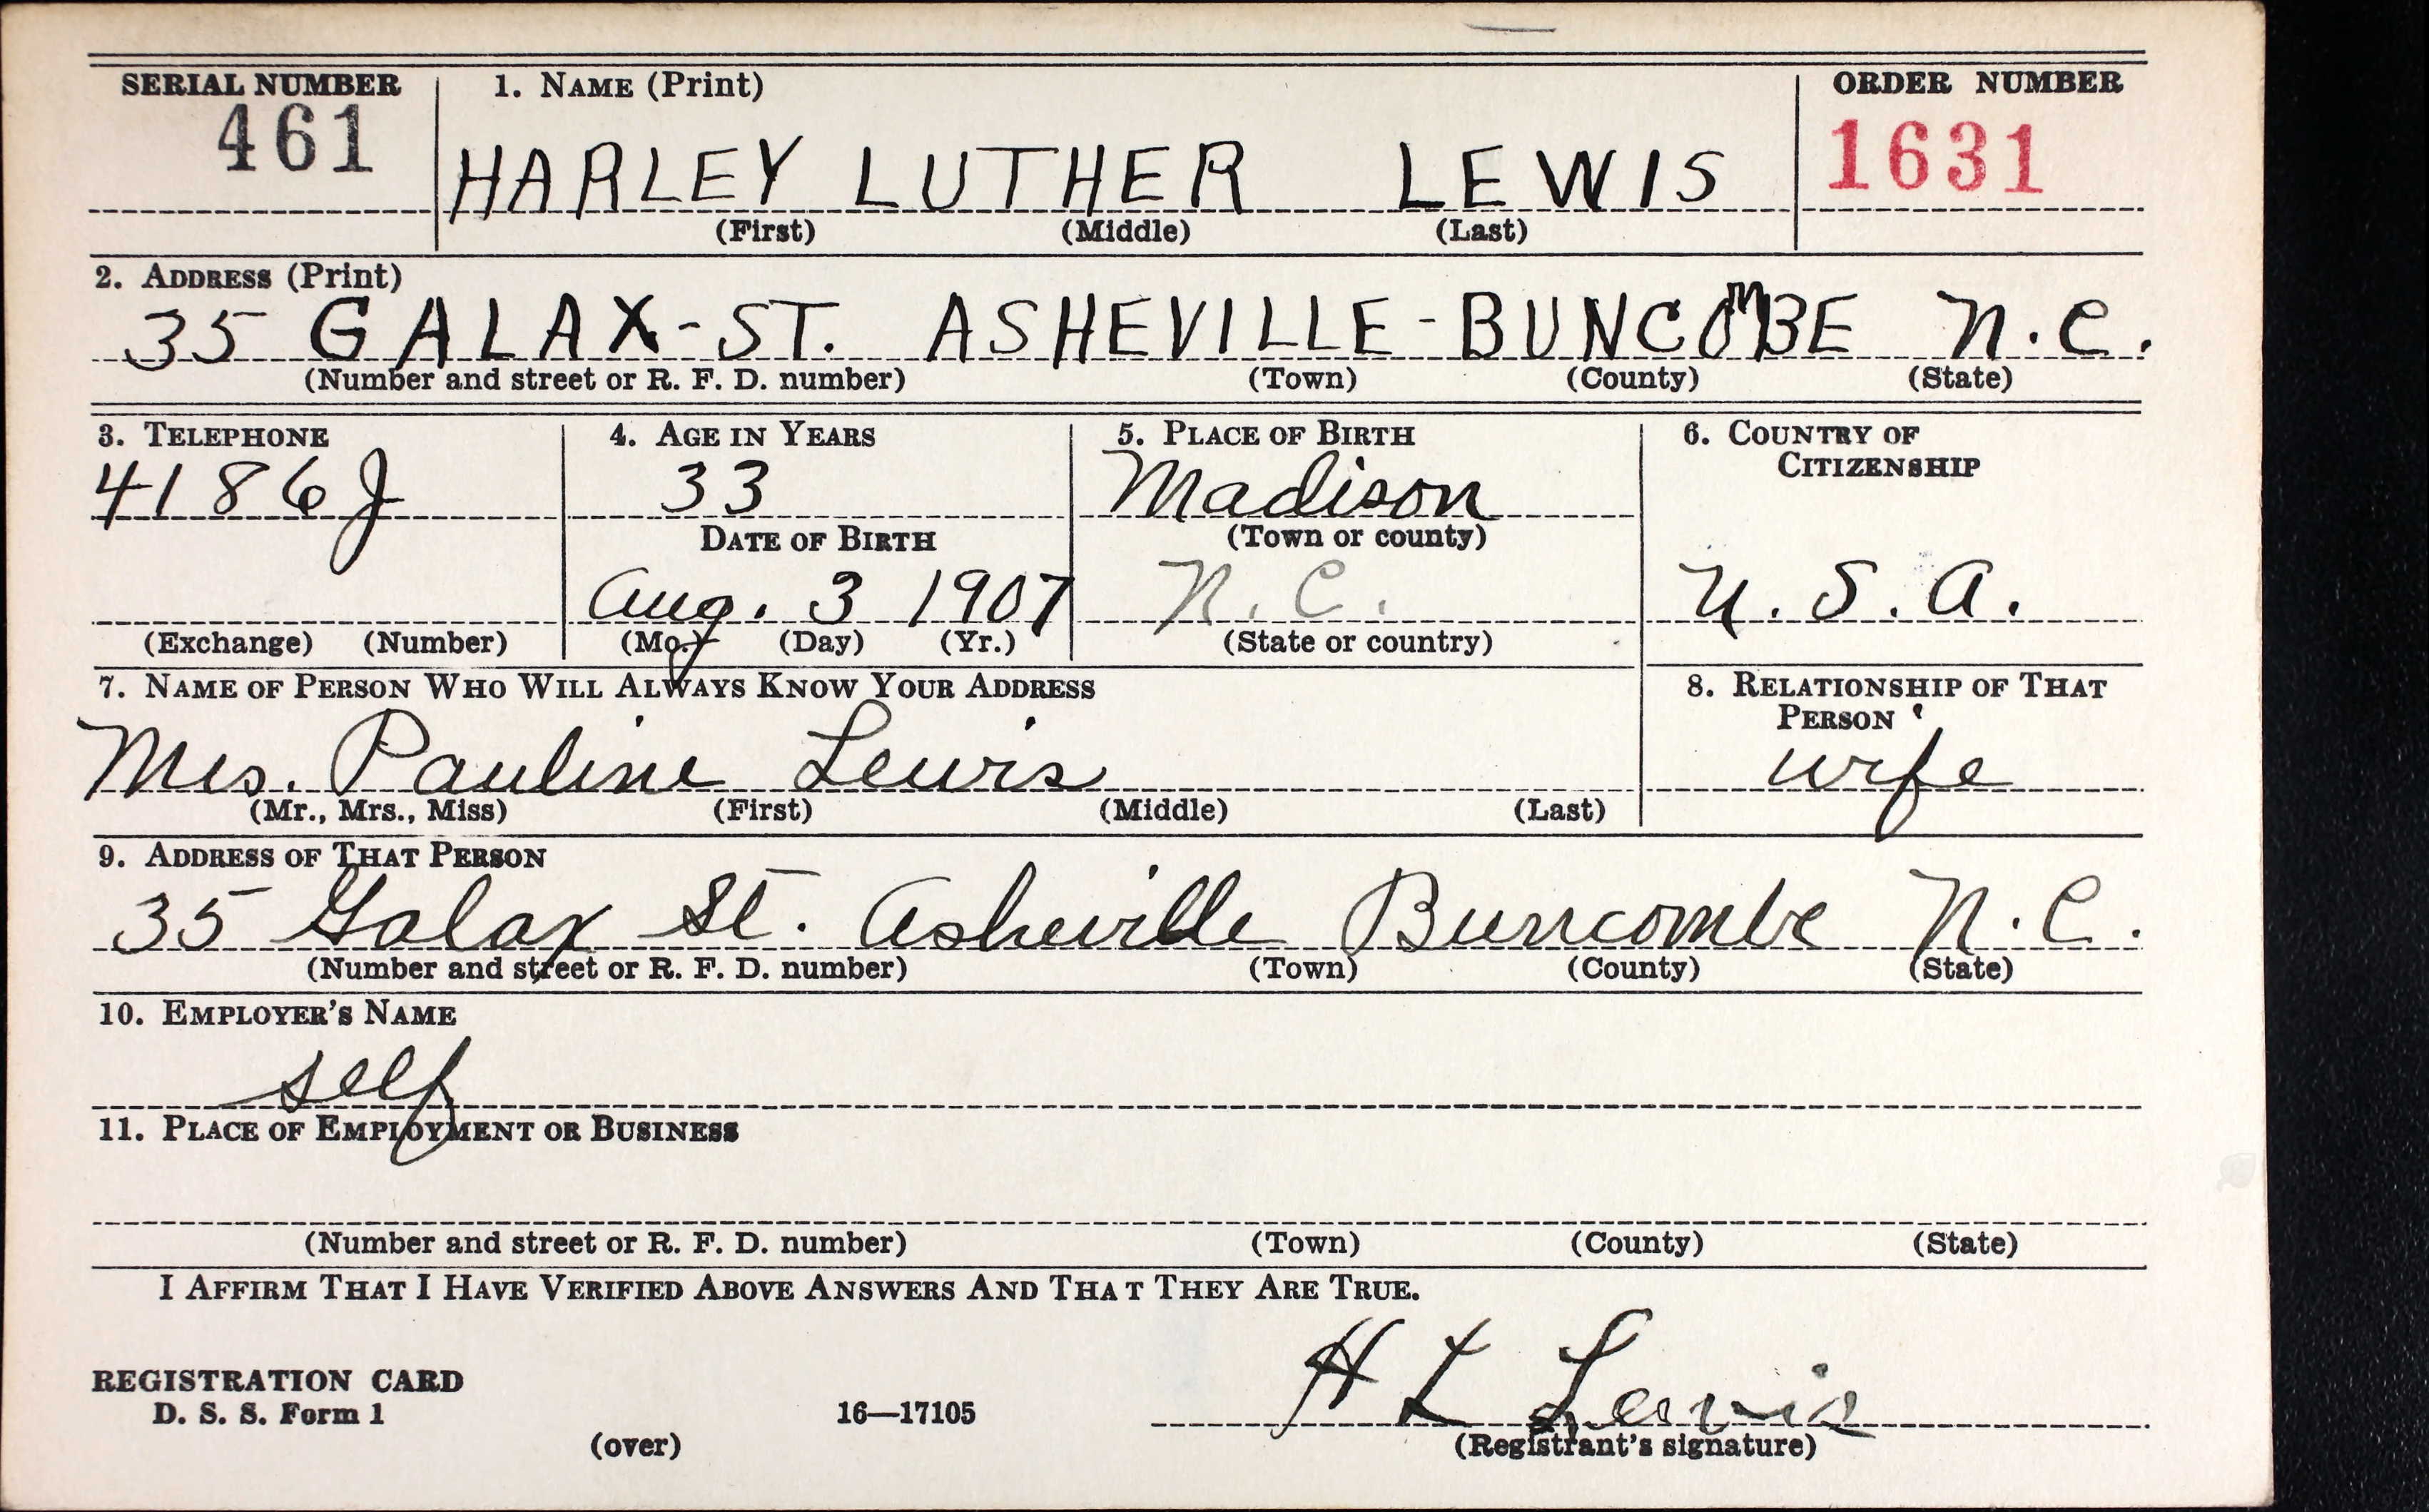 SERIAL NUMBER 1. NAME (Print) ORDER NUMBER
461 HARLEY LUTHER LEWIS 1631
(First) (Middle) (Last)
2. ADDRESS (Print)
35 GALAX-ST. ASHEVILLE-BUNCOMBE N.C.
(Number and street or R. F. D. number) (Town) (County) (State)
3. TELEPHONE 4. AGE IN YEARS 5. PLACE OF BIRTH 6. COUNTRY OF
CITIZENSHIP
4186J 33 Madison
DATE OF BIRTH (Town or county)
Aug. 3 1907 N.C. U.S.A.
(Exchange) (Number) (Mo.) (Day) (Yr.) (State or country)
7. NAME OF PERSON WHO WILL ALWAYS KNOW YOUR ADDRESS 8. RELATIONSHIP OF THAT
PERSON
Mrs. Pauline Lewis wife
(Mr., Mrs., Miss) (First) (Middle) (Last)
9. ADDRESS OF THAT PERSON
35 Galax St. Asheville Buncombe N.C.
(Number and street or R. F. D. number) (Town) (County) (State)
10. EMPLOYER'S NAME
self
11. PLACE OF EMPLOYMENT OR BUSINESS
(Number and street or R. F. D. number) (Town) (County) (State)
I AFFIRM THAT I HAVE VERIFIED ABOVE ANSWERS AND THAT THEY ARE TRUE.
H L Lewis
REGISTRATION CARD
D. S. S. Form 1 16—17105
(over) (Registrant's signature)